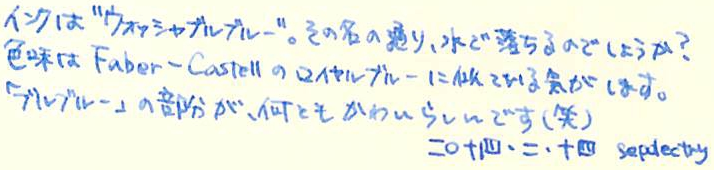 インクは"ウォッシャブルブルー"。その名の通り、水で落ちるのでしょうか?
色味は Faber-Castell の ロイヤルブルーに似ている気がします。
「ブルブルー」の部分が、何ともかわいらしいです(笑)
二〇十四・二・十四